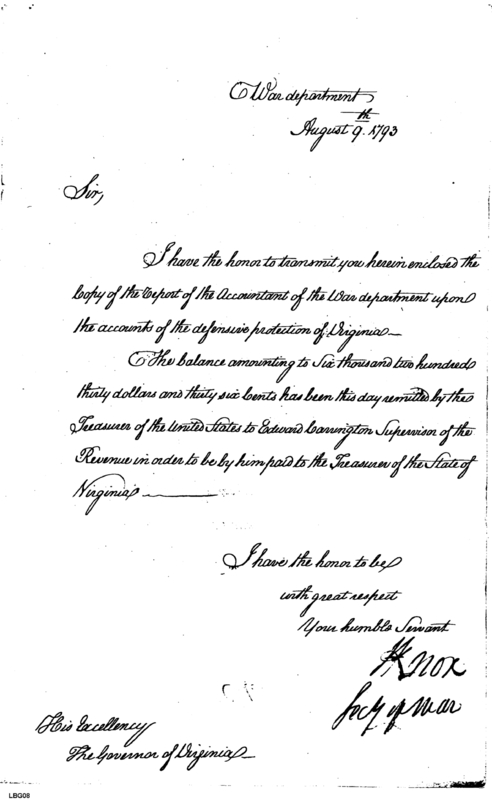 War department
August 9.th 1793
Sir,
I have the honor to transmit you herein enclosed the
Copy of the Report of the Accountant of the War department upon
the accounts of the defensive protection of Virginia
The balance amounting to Six thousand two hundred
thirty dollars and thirty six Cents has been this day remitted by the
Treasurer of the United States to Edward Carrington Supervisor of the
Revenue in order to be by him paid to the Treasurer of the State of
Virginia
I have the honor to be
with great respect
Your humble Servant
HKnox
Secy of War
His Excellency
The Governor of Virginia
LBG08